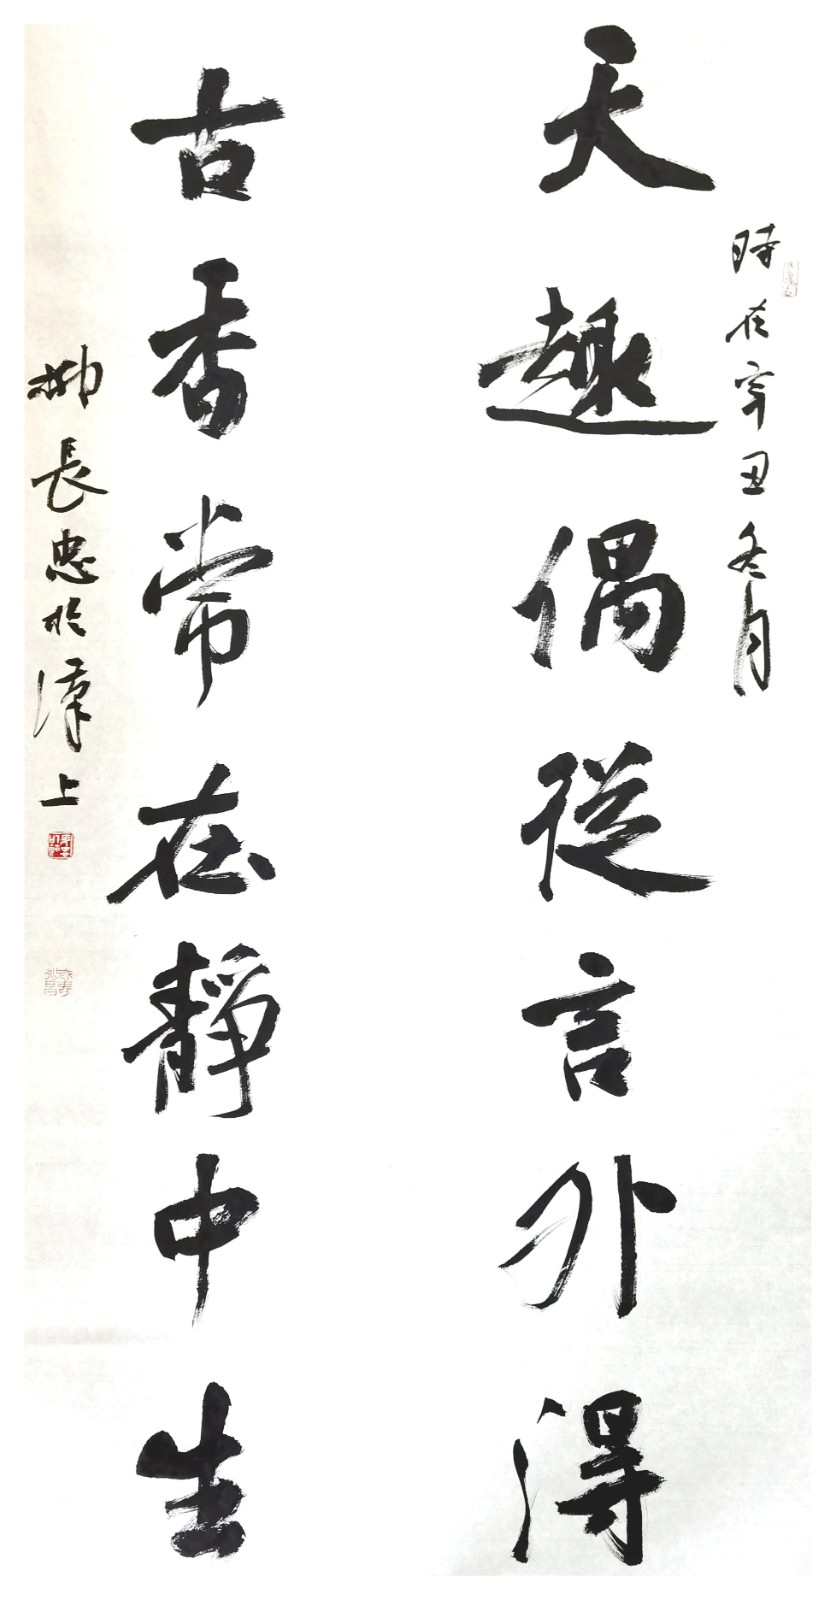 天趣偶從言外得
時在辛丑冬月
古香常在靜中生
柳長忠於漢上